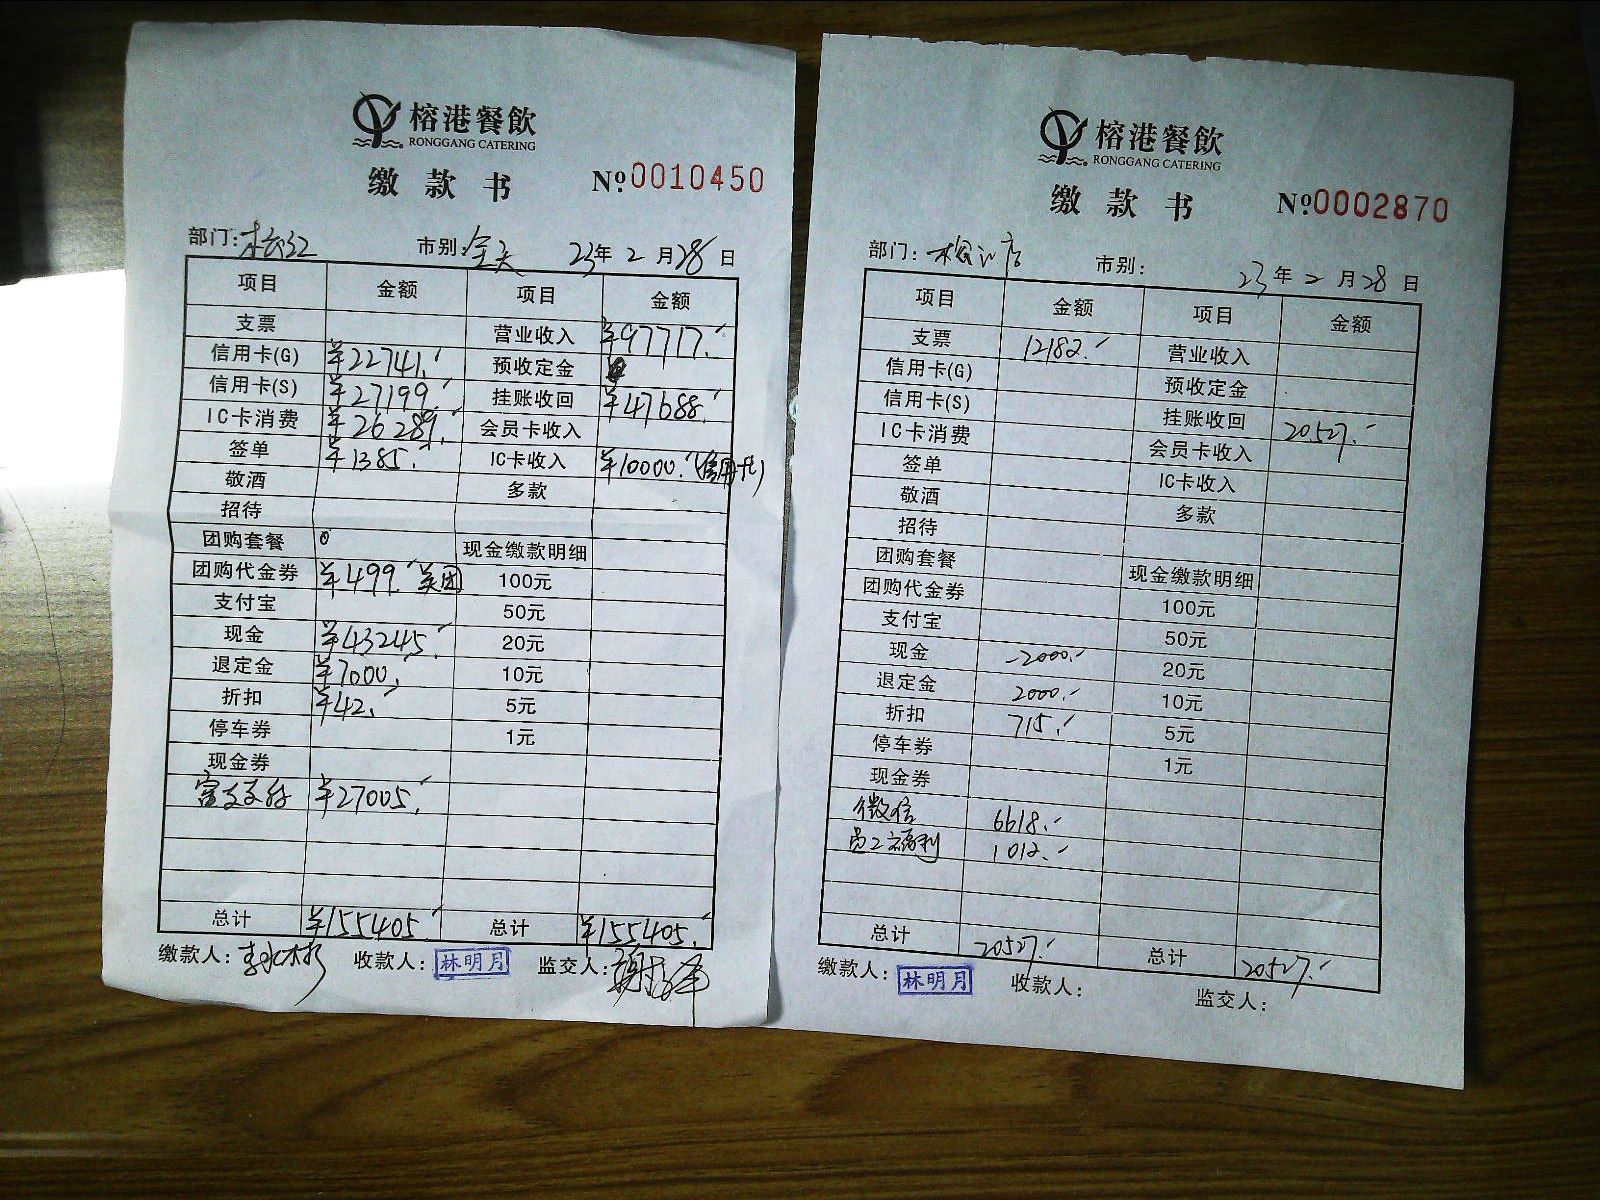 榕港餐飲
RONGGANG CATERING
缴款书
№0010450
部门: 市别:全天 23年2月28日
项目 金额 项目 金额
支票 营业收入 ¥97717.
信用卡(G) ¥22741. 预收定金
信用卡(S) ¥27199. 挂账收回 ¥47688.
IC卡消费 ¥26289. 会员卡收入
签单 ¥1385. IC卡收入 ¥10000.(信用卡)
敬酒 多款
招待
团购套餐 0 现金缴款明细
团购代金券 ¥499. 美团 100元
支付宝 50元
现金 ¥43245. 20元
退定金 ¥7000. 10元
折扣 ¥42. 5元
停车券 1元
现金券
¥27005.
总计 ¥155405 总计 ¥155405.
缴款人: 收款人:林明月 监交人:
榕港餐飲
RONGGANG CATERING
缴款书
№0002870
部门: 市别: 23年2月28日
项目 金额 项目 金额
支票 12182. 营业收入
信用卡(G) 预收定金
信用卡(S) 挂账收回 20527.
IC卡消费 会员卡收入
签单 IC卡收入
敬酒 多款
招待
团购套餐 现金缴款明细
团购代金券 100元
支付宝 50元
现金 -2000. 20元
退定金 2000. 10元
折扣 715. 5元
停车券 1元
现金券
微信 6618.
员工福利 1012.
总计 20527. 总计 20527.
缴款人:林明月 收款人: 监交人: